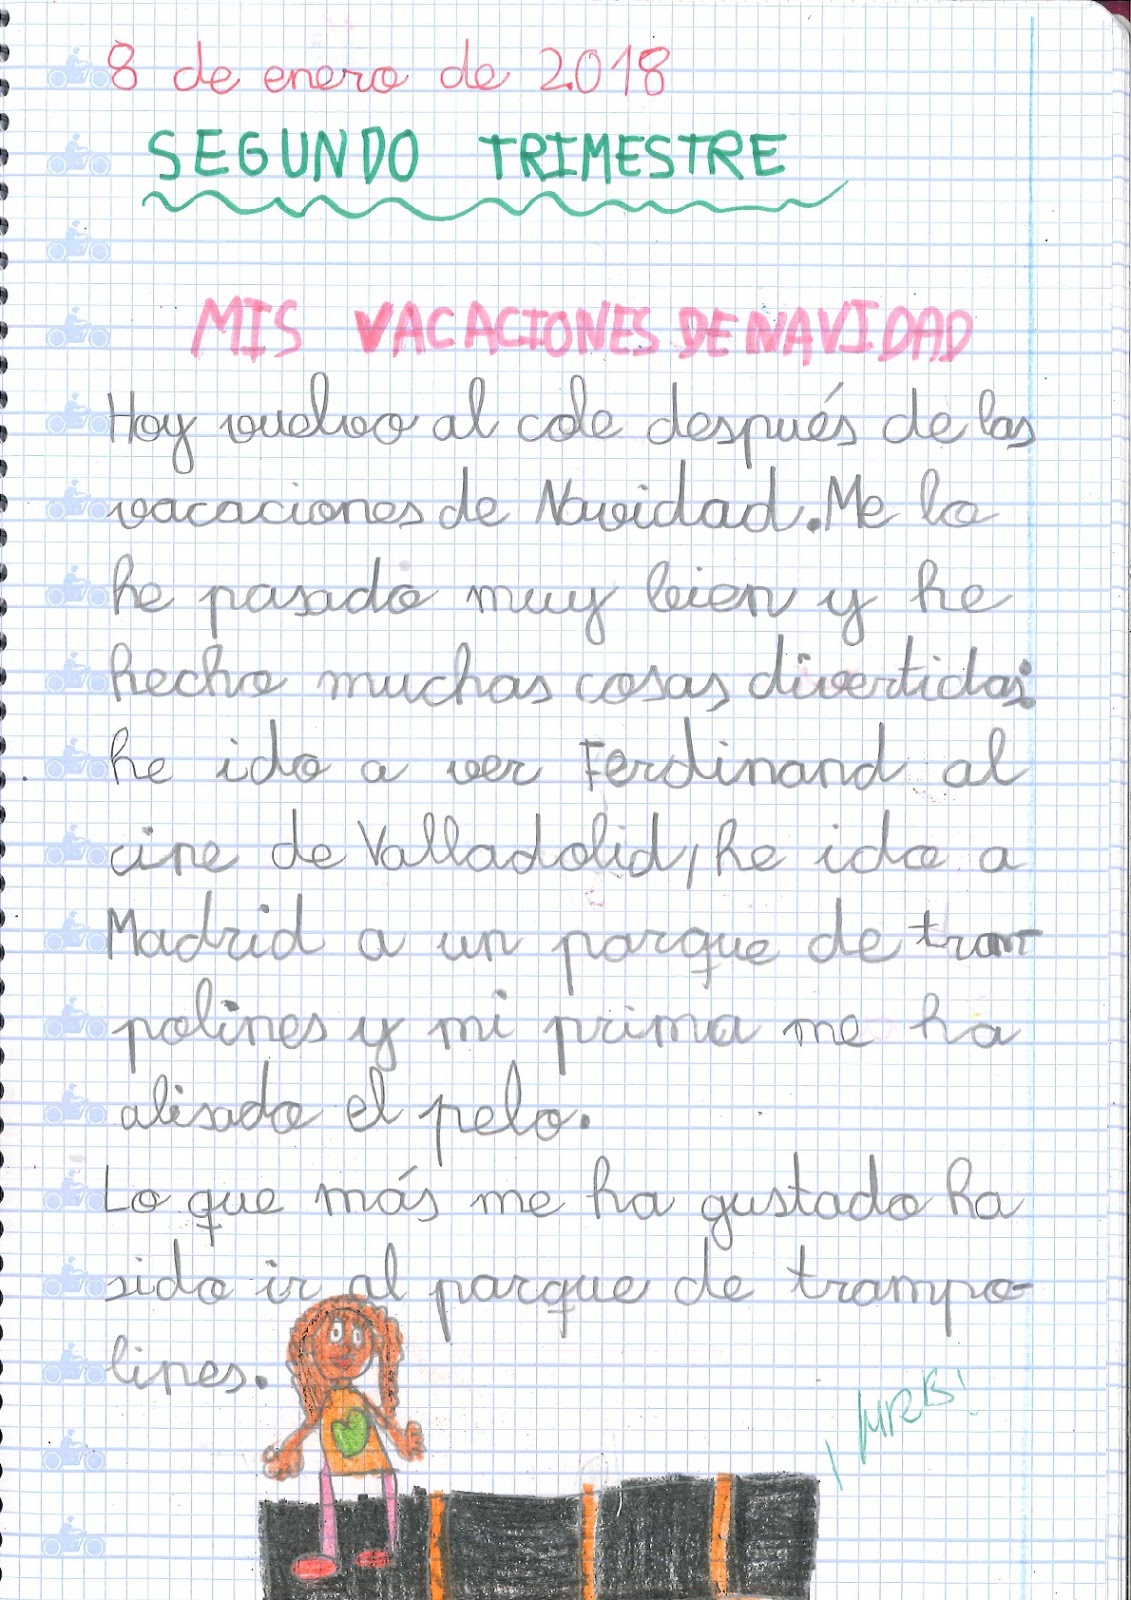 8 de enero de 2018
SEGUNDO TRIMESTRE
MIS VACACIONES DE NAVIDAD
Hoy vuelvo al cole después de las
vacaciones de Navidad. Me lo
he pasado muy bien y he
hecho muchas cosas divertidas:
he ido a ver Ferdinand al
cine de Valladolid, he ido a
Madrid a un parque de tram-
polines y mi prima me ha
alisado el pelo.
Lo que más me ha gustado ha
sido ir al parque de trampo-
lines.